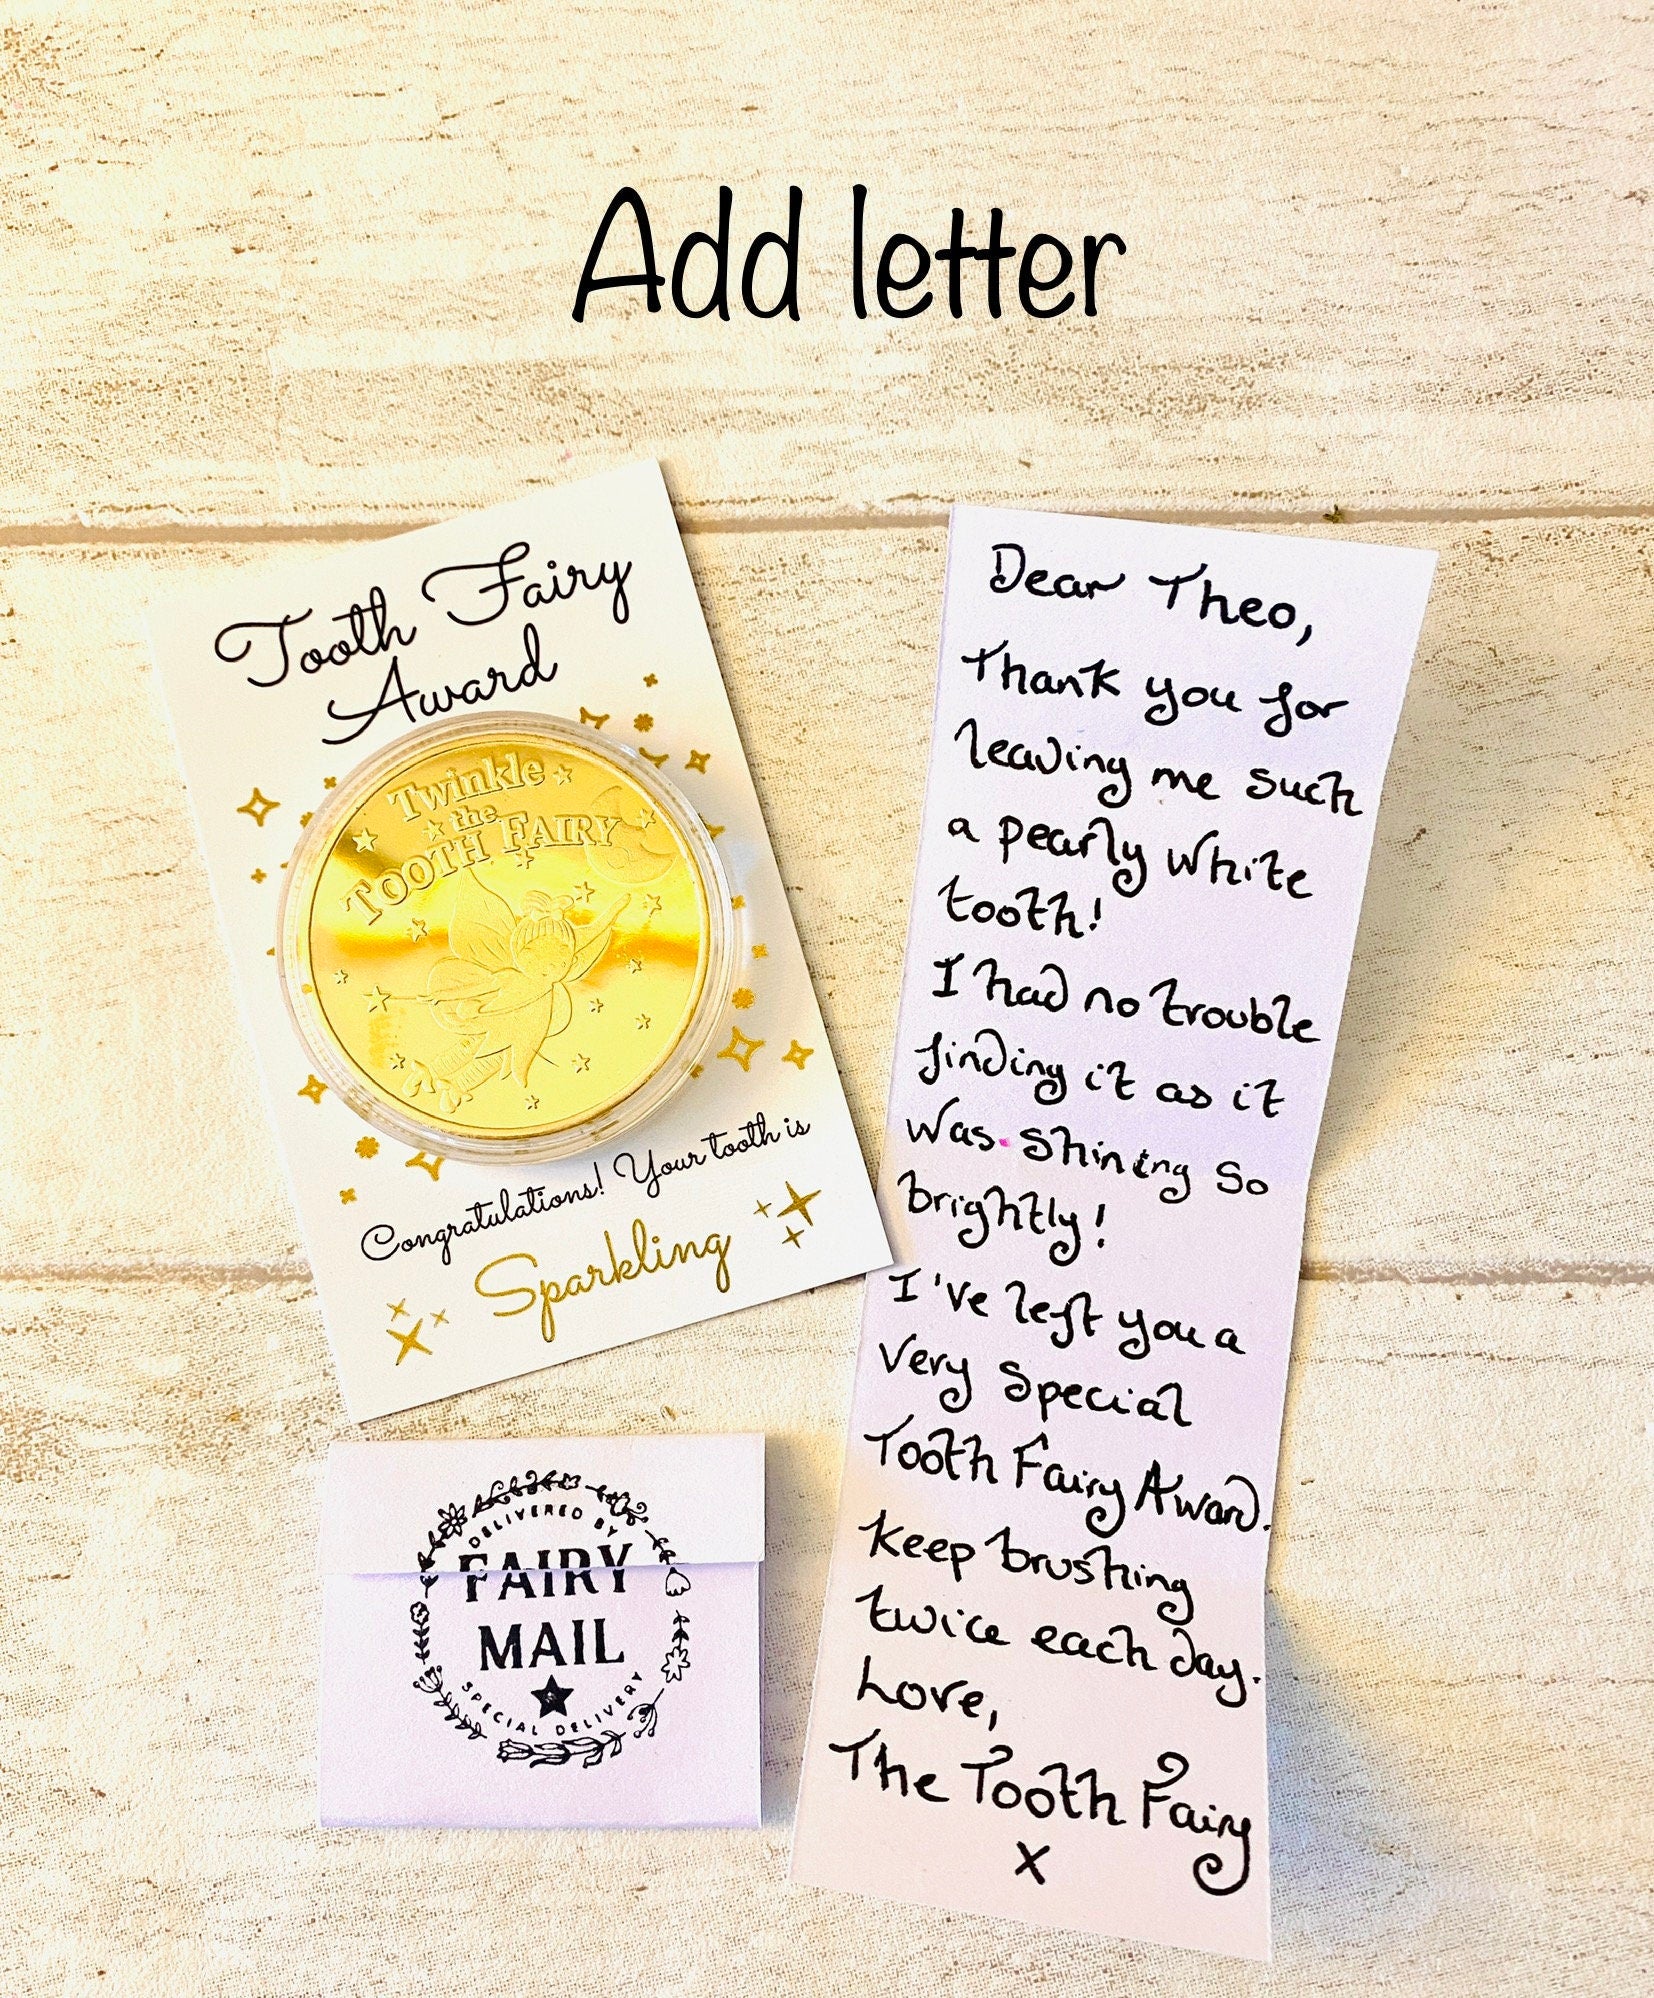 Add letter
Tooth Fairy
Award
Twinkle
the
TOOTH FAIRY
Congratulations! Your tooth is
Sparkling
DELIVERED BY
FAIRY
MAIL
SPECIAL DELIVERY
Dear Theo,
Thank you for
leaving me such
a pearly white
tooth!
I had no trouble
finding it as it
was shining so
brightly!
I've left you a
very special
Tooth Fairy Award.
Keep brushing
twice each day.
Love,
The Tooth Fairy
x